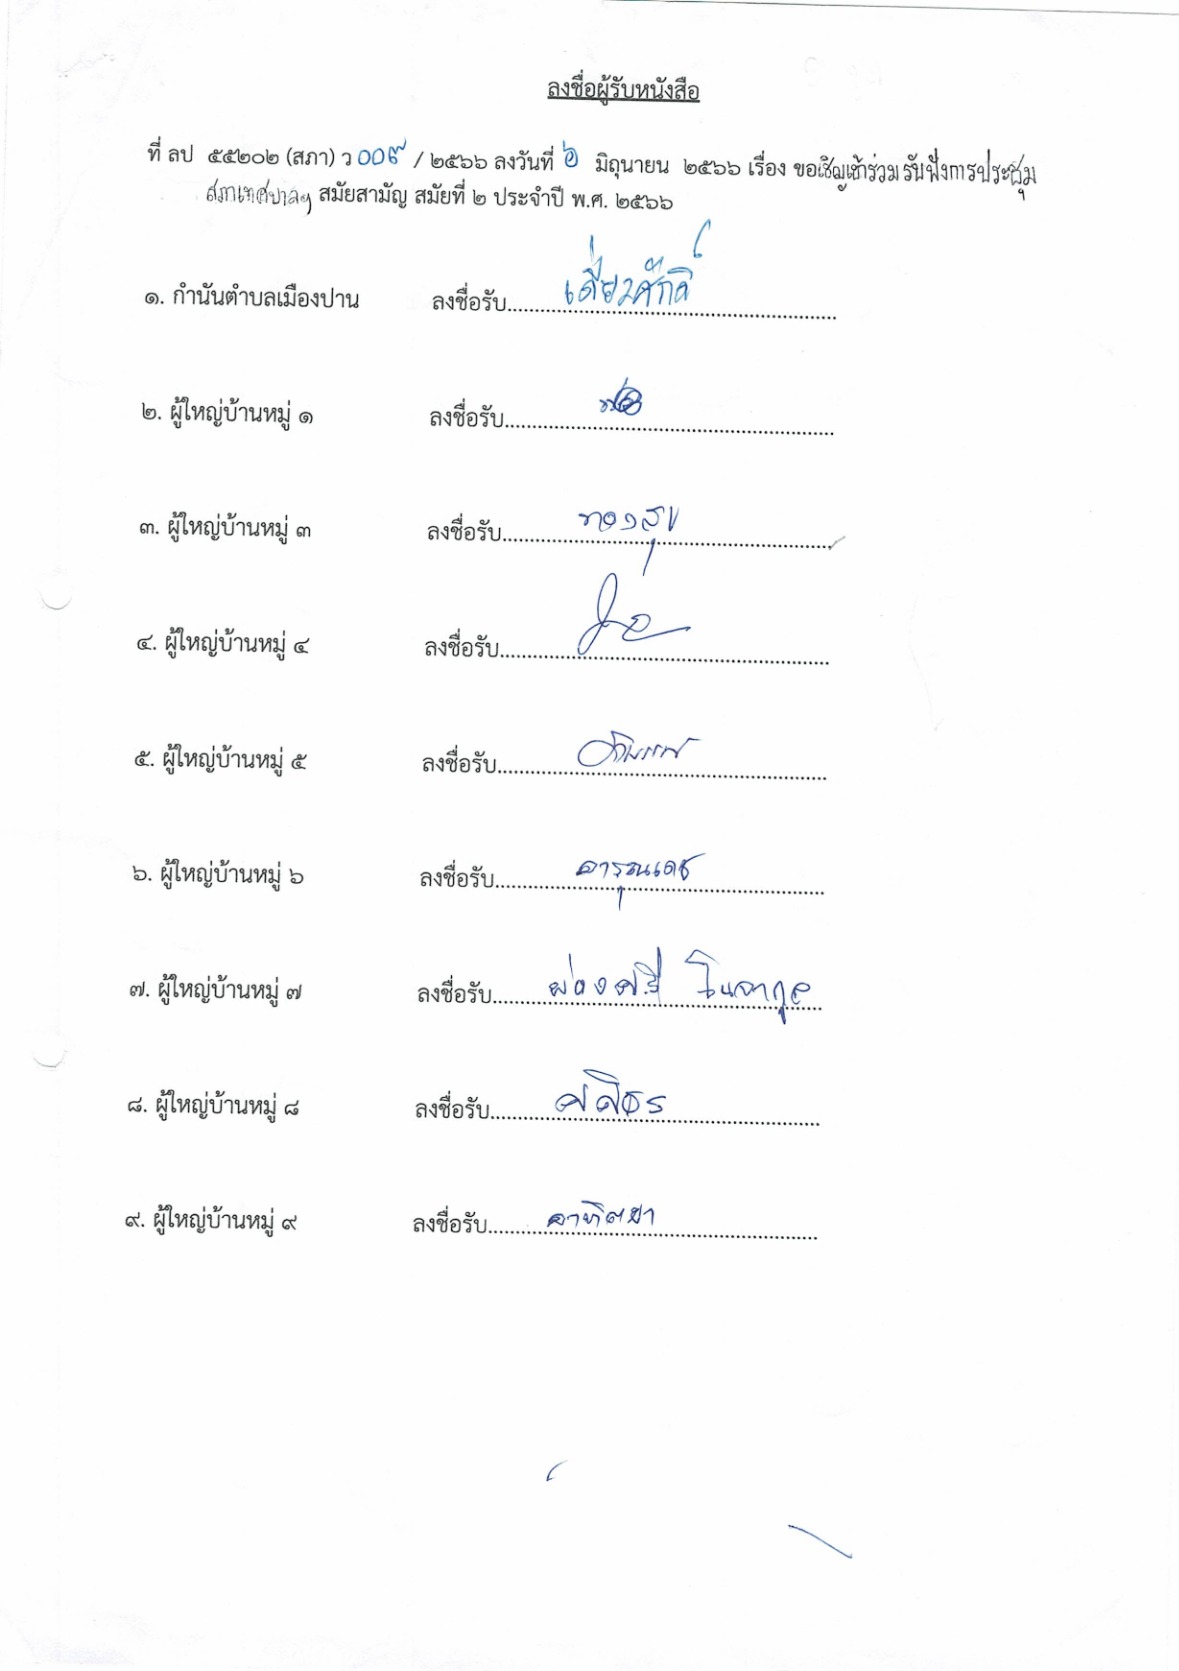 ลงชื่อผู้รับหนังสือ
ที่ ลป ๕๕๒๐๒ (สภา) ว ๐๐๙ / ๒๕๖๖ ลงวันที่ ๖ มิถุนายน ๒๕๖๖ เรื่อง ขอเชิญเข้าร่วมรับฟังการประชุม
สภาเทศบาลฯ สมัยสามัญ สมัยที่ ๒ ประจำปี พ.ศ. ๒๕๖๖
๑. กำนันตำบลเมืองปาน ลงชื่อรับ
๒. ผู้ใหญ่บ้านหมู่ ๑ ลงชื่อรับ
๓. ผู้ใหญ่บ้านหมู่ ๓ ลงชื่อรับ ทองสุข
๔. ผู้ใหญ่บ้านหมู่ ๔ ลงชื่อรับ
๕. ผู้ใหญ่บ้านหมู่ ๕ ลงชื่อรับ
๖. ผู้ใหญ่บ้านหมู่ ๖ ลงชื่อรับ
๗. ผู้ใหญ่บ้านหมู่ ๗ ลงชื่อรับ ผ่องศรี
๘. ผู้ใหญ่บ้านหมู่ ๘ ลงชื่อรับ ศศิธร
๙. ผู้ใหญ่บ้านหมู่ ๙ ลงชื่อรับ อาทิตยา